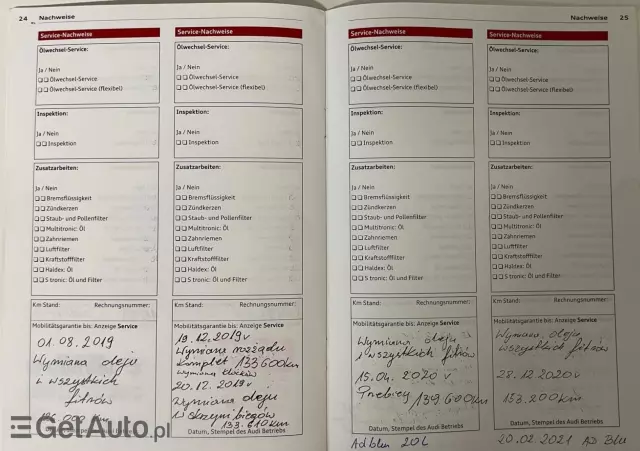 24 Nachweise
Service-Nachweise
Ölwechsel-Service:
Ja / Nein
Ölwechsel-Service
Ölwechsel-Service (flexibel)
Inspektion:
Ja / Nein
Inspektion
Zusatzarbeiten:
Ja / Nein
Bremsflüssigkeit
Zündkerzen
Staub- und Pollenfilter
Multitronic: Öl
Zahnriemen
Luftfilter
Kraftstofffilter
Haldex: Öl
S tronic: Öl und Filter
Km Stand: Rechnungsnummer:
Mobilitätsgarantie bis: Anzeige Service
01.08.2019
Wymiana oleju
wszystkich
filtrów
000 km
Service-Nachweise
Ölwechsel-Service:
Ja / Nein
Ölwechsel-Service
Ölwechsel-Service (flexibel)
Inspektion:
Ja / Nein
Inspektion
Zusatzarbeiten:
Ja / Nein
Bremsflüssigkeit
Zündkerzen
Staub- und Pollenfilter
Multitronic: Öl
Zahnriemen
Luftfilter
Kraftstofffilter
Haldex: Öl
S tronic: Öl und Filter
Km Stand: Rechnungsnummer:
Mobilitätsgarantie bis: Anzeige Service
19.12.2019 r
Wymiana rozrządu
komplet 133 600 km
wymiana
20.12.2019 r
Wymiana oleju
w skrzyni biegów
133.610 km
Datum, Stempel des Audi Betriebs
Nachweise 25
Service-Nachweise
Ölwechsel-Service:
Ja / Nein
Ölwechsel-Service
Ölwechsel-Service (flexibel)
Inspektion:
Ja / Nein
Inspektion
Zusatzarbeiten:
Ja / Nein
Bremsflüssigkeit
Zündkerzen
Staub- und Pollenfilter
Multitronic: Öl
Zahnriemen
Luftfilter
Kraftstofffilter
Haldex: Öl
S tronic: Öl und Filter
Km Stand: Rechnungsnummer:
Mobilitätsgarantie bis: Anzeige Service
Wymiana oleju
i wszystkich filtrów
15.04.2020 r
Przebieg 139 600 km
Datum, Stempel des Audi Betriebs
Adblu 20L
Service-Nachweise
Ölwechsel-Service:
Ja / Nein
Ölwechsel-Service
Ölwechsel-Service (flexibel)
Inspektion:
Ja / Nein
Inspektion
Zusatzarbeiten:
Ja / Nein
Bremsflüssigkeit
Zündkerzen
Staub- und Pollenfilter
Multitronic: Öl
Zahnriemen
Luftfilter
Kraftstofffilter
Haldex: Öl
S tronic: Öl und Filter
Km Stand: Rechnungsnummer:
Mobilitätsgarantie bis: Anzeige Service
Wymiana oleju
wszystkich filtrów
28.12.2020 r
153.200 km
Datum, Stempel des Audi Betriebs
20.02.2021 AD Blu
GetAuto.pl